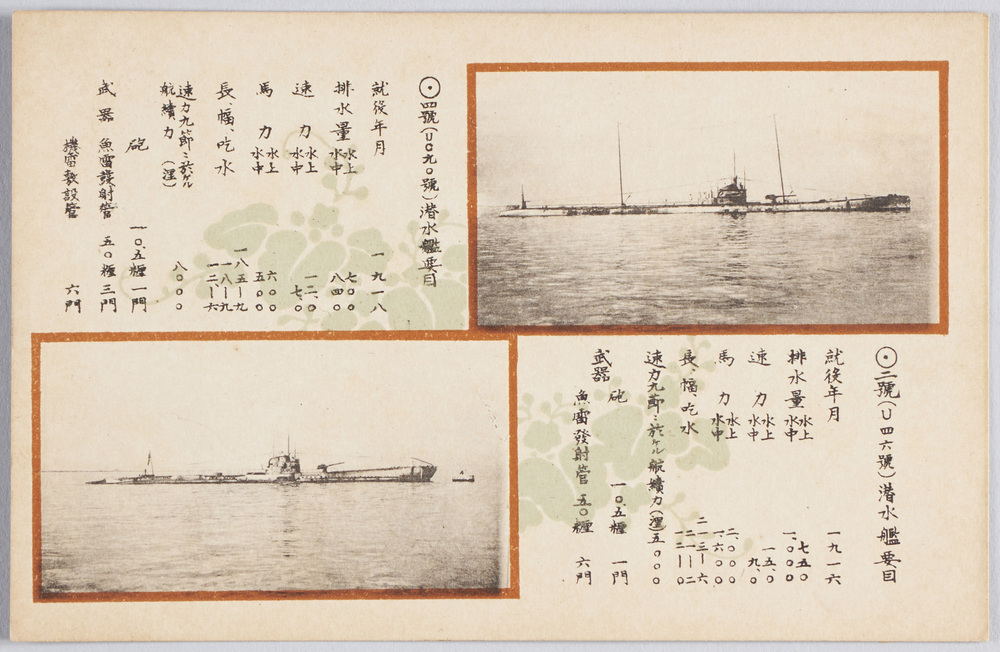 ⦿四號(UC九〇號)潜水艦要目
就役年月 一九一八
排水量 水上 七〇〇
水中 八四〇
速力 水上 一二、〇
水中 七、〇
馬力 水上 六〇〇
水中 五〇〇
長、幅、吃水 一八五ー九
一八ー九
一二、ー六
速力九節ニ於ケル
航續力(浬) 八〇〇〇
武器 砲 一〇、五糎 一門
魚雷發射管 五〇糎 三門
機雷敷設管 六門
⦿二號(U四六號)潜水艦要目
就役年月 一九一六
排水量 水上 七五〇
水中 一、〇〇〇
速力 水上 一五、〇
水中 九、〇
馬力 水上 二、〇〇〇
水中 一、六〇〇
長、幅、吃水 二一三ー六、
二一ー二
一二ー〇
速力九節ニ於ケル航續力(浬)五〇〇〇
武器 砲 一〇、五糎 一門
魚雷發射管 五〇糎 六門